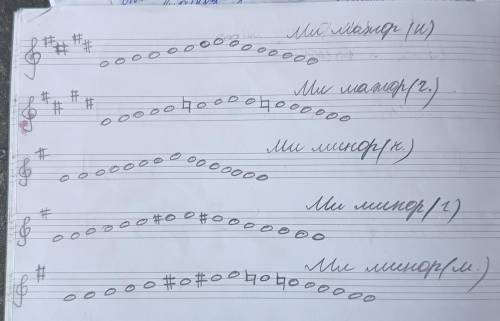 Ми мажор (н)
Ми мажор (г.)
Ми минор (н.
Ми минор (г)
Ми минор (м.)